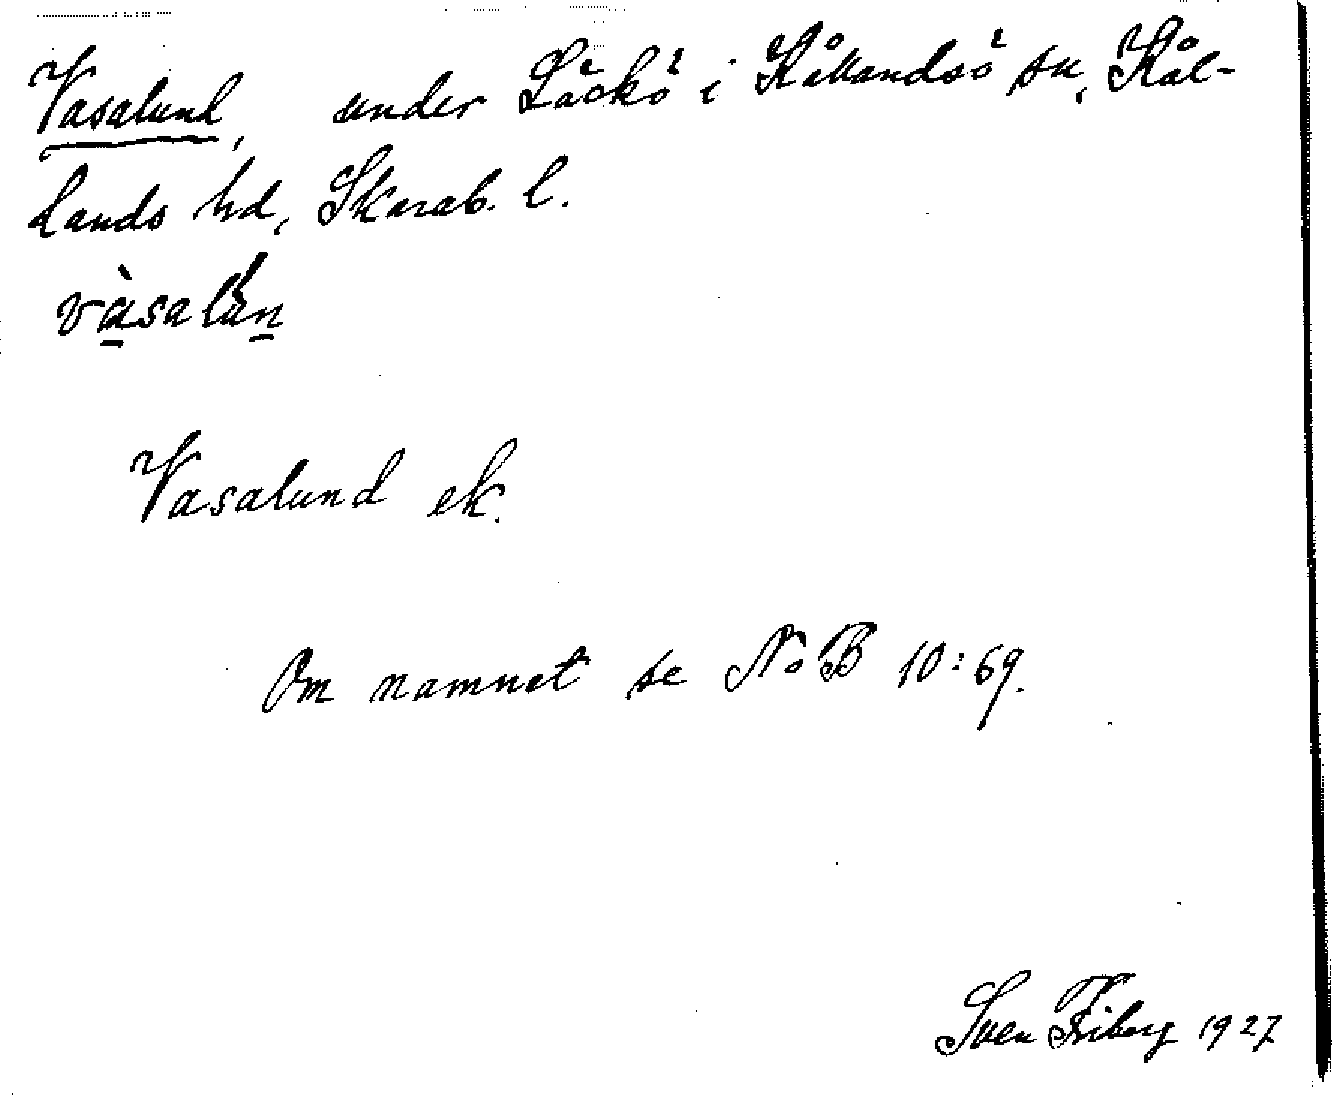 Vasalund, under Läckö i Kållandsö sn, Kål-
lands hd, Skarab. l.
vàsalu̇n
Vasalund ek.
Om namnet se NoB 10:69.
Sven Friberg 1927